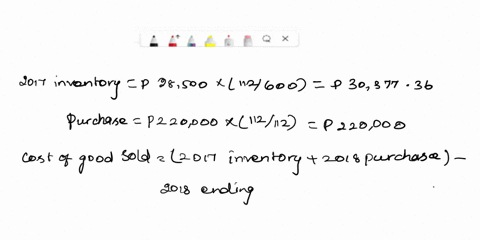 2017 inventory = P 28,500 × (112/600) = P 30,377.36
Purchase = P220,000 × (112/112) = P 220,000
Cost of good Sold = (2017 inventory + 2018 purchase) –
2018 ending